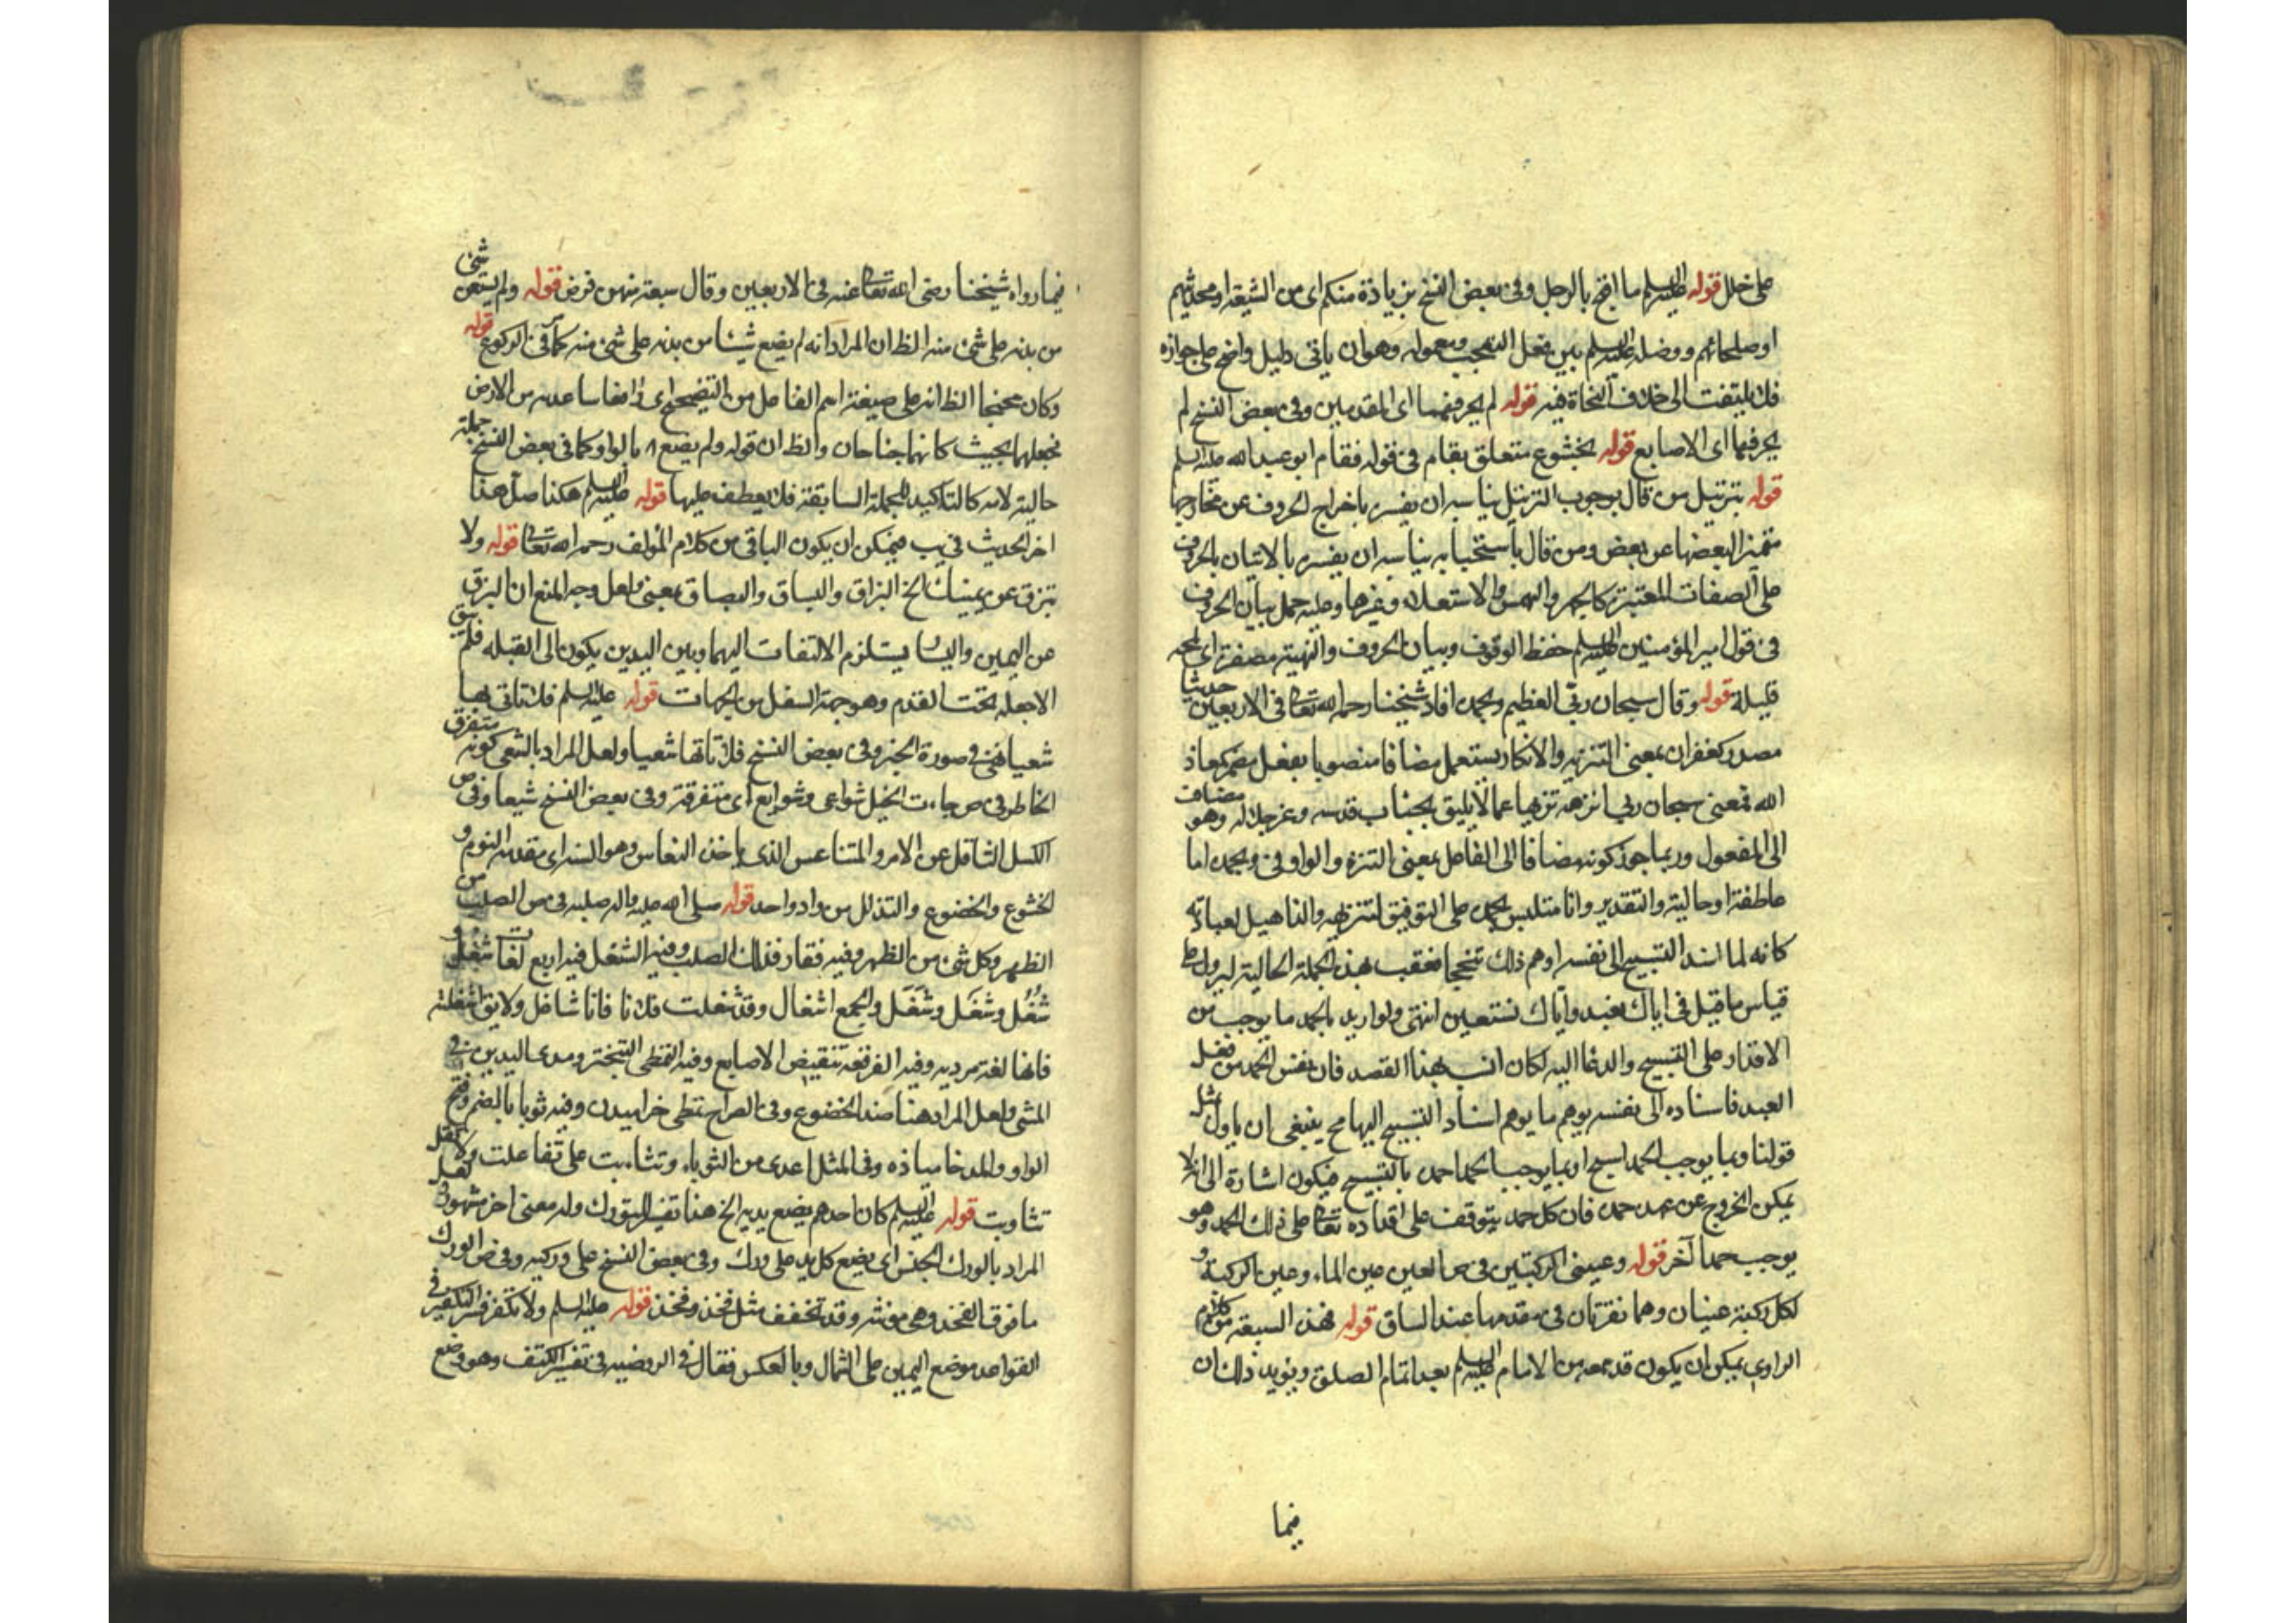 على خلل قوله عليه السلم ما اقبح بالرجل وفى بعض النسخ بزيادة منكم اى من الشيعة او محدثيهم
او صلحائهم ووصله عليه السلم بين فعل التعجب ومعموله وهوان ياتى دليل واضح على جوازه
فلا يلتفت الى خلاف النحاة فيه قوله لم يحرفهما اى القدمين وفى بعض النسخ لم
يحرفها اى الاصابع قوله بخشوع متعلق بقام فى قوله فقام ابو عبدالله عليه السلم
قوله بترتيل من قال بوجوب الترتيل يناسبه ان يفسره باخراج الحروف عن مخارجها
متميزا بعضها عن بعض ومن قال باستحبابه يناسبه ان يفسره بالاتيان بالحروف
على الصفات المعتبرة كالجهر والهمس والاستعلاء وغيرها وعليه حمل بيان الحروف
فى قول امير المؤمنين عليه السلم حفظ الوقوف وبيان الحروف والهنية مصغرة اى لمحه
قليلة قوله وقال سبحان ربى العظيم وبحمده افاد شيخنا رحمه الله تعالى فى الاربعين حديثا
مصدر كغفران بمعنى التنزيه والانكاد يستعمل مضافا منصوبا بفعل مضمر كمعاذ
الله فمعنى سبحان ربى انزهه تنزيها عما لا يليق بجناب قدسه وعز جلاله وهو مضاف
الى المفعول وربما جوز كونه مضافا الى الفاعل بمعنى التنزه والواو فى وبحمده اما
عاطفة او حالية والتقدير وانا متلبس بحمده على التوفيق لتنزيهه والتاهيل لعبادته
كانه لما اسند التسبيح الى نفسه اوهم ذلك تبجحا فعقب بهذه الجملة الحالية ليزول على
قياس ما قيل فى اياك نعبد واياك نستعين انتهى ولو اريد بالحمد ما يوجبه من
الاقدار على التسبيح والدعا اليه لكان انسب بهذا القصد فان نفس الحمد من فعل
العبد فاسناده الى نفسه يوهم ما يوهم اسناد التسبيح اليها مح ينبغى ان ياول مثل
قولنا وبما يوجب الحمد اسبح او بما يوجب الحمد احمده بالتسبيح فيكون اشارة الى انه لا
يمكن الخروج عن عهدة حمده فان كل حمد يتوقف على اقداره تعالى على ذلك الحمد وهو
يوجب حمدا آخر قوله وعينى الركبتين فى ص العين عين الماء وعين الركبة و
لكل ركبة عينان وهما نقرتان فى مقدمها عند الساق قوله فهذه السبعة من كلام
الراوى يمكن ان يكون قد سمعه من الامام عليه السلم بعد اتمام الصلوة ويؤيد ذلك ان
فيما
فيما رواه شيخنا رضى الله تعالى عنه فى الاربعين وقال سبعة منهن فرض قوله ولم يستعن شئ
من بدنه على شئ منه الظ ان المراد انه لم يضع شيئا من بدنه على شئ منه كما فى الركوع قوله
وكان مجنحا الظ انه على صيغة اسم الفاعل من التفعيل اى رافعا ساعديه من الارض
فجعلهما بحيث كانهما جناحان والظ ان قوله ولم يضع بالواو كما فى بعض النسخ جملة
حالية لانه كالتاكيد للجملة السابقة فلا يعطف عليها قوله عليه السلم هكذا صل هذا
اخر الحديث فى يب فيمكن ان يكون الباقى من كلام المؤلف رحمه الله تعالى قوله ولا
تبزق عن يمينك الخ البزاق والبساق والبصاق بمعنى ولعل وجه المنع ان البزق
عن اليمين واليسار يستلزم الالتفات اليهما وبين اليدين يكون الى القبلة فلم يبق
الا جعله تحت القدم وهو جهة السفل من الجهات قوله عليه السلم فلا تاتى بها
شعيا فهى فى صورة الخبر وفى بعض النسخ فلا تاتها شعيا ولعل المراد بالشعى كونه متفرق
الخاطر فى ص جاءت الخيل شواعى وشوايع اى متفرقة وفى بعض النسخ شيعا وفى ص
الكسل التثاقل عن الامر والمتناعس الذى ياخذه النعاس وهو السنة اى مقدمة النوم و
الخشوع والخضوع والتذلل من واد واحد قوله صلى الله عليه واله صلبه فى ص الصلب من
الظهر وكل شئ من الظهر وفيه فقار فذلك الصلب وفيه الشغل فيه اربع لغات شُغْل و
شُغُل وشَغْل وشَغَل والجمع اشغال وقد شغلت فلانا فانا شاغل ولا يق اشغلته
فانها لغة مردية وفيه الفرقعة تنقيض الاصابع وفيه التمطى التبختر ومد اليدين فى
المشى ولعل المراد هنا ضد الخضوع وفى الصراح تمطى خراميدن وفيه ثوبا بالضم وفتح
الواو والمد خاميازه وفى المثل اعدى من الثوباء وتثاءبت على تفاعلت ولا تقل
تثاوبت قوله عليه السلم كان احدهم يضع يديه الخ هذا تفسير التورك وله معنى اخر مشهور لعل
المراد بالورك الجنس اى يضع كل يد على ورك وفى بعض النسخ على وركيه وفى ص الورك
ما فوق الفخذ وهى مؤنثه وقد تخفف مثل فخذ وفخذ قوله عليه السلم ولا تكفر فسر التكفير فى
القواعد بوضع اليمين على الشمال وبالعكس فقال فى الروضيه فى تفسير التكتف وهو وضع